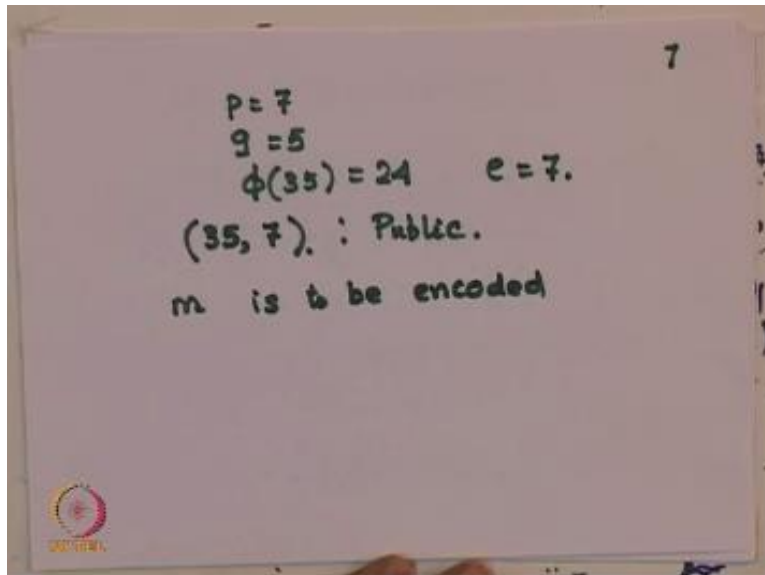 7
p = 7
q = 5
φ(35) = 24 e = 7.
(35, 7). : Public.
m is to be encoded
NPTEL